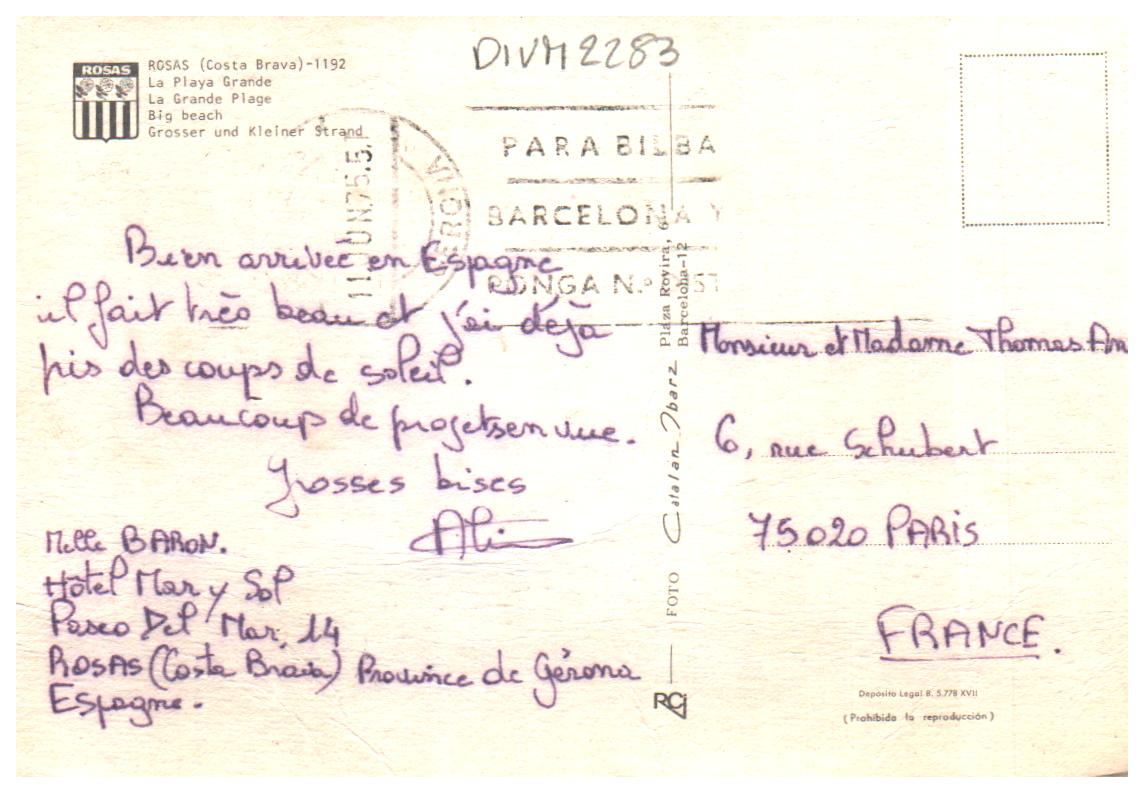 DIVM2283
ROSAS
ROSAS (Costa Brava)-1192
La Playa Grande
La Grande Plage
Big beach
Grosser und Kleiner Strand
PARA BILBA
BARCELONA Y
GERONA
Bien arrivée en Espagne
il fait très beau et j'ai déjà
pis des coups de soleil.
Beaucoup de projets en vue.
Grosses bises
Melle BARON.
Hôtel Mar y Sol
Paseo Del Mar, 14
ROSAS (Costa Brava) Province de Gérona
Espagne.
FOTO Catalan Ibarz Plaza Rovira, 6
Barcelona-12
RCi
Monsieur et Madame Thomas
6, rue Schubert
75020 PARIS
FRANCE.
Depósito Legal B. 5.778 XVII
(Prohibida la reproducción)